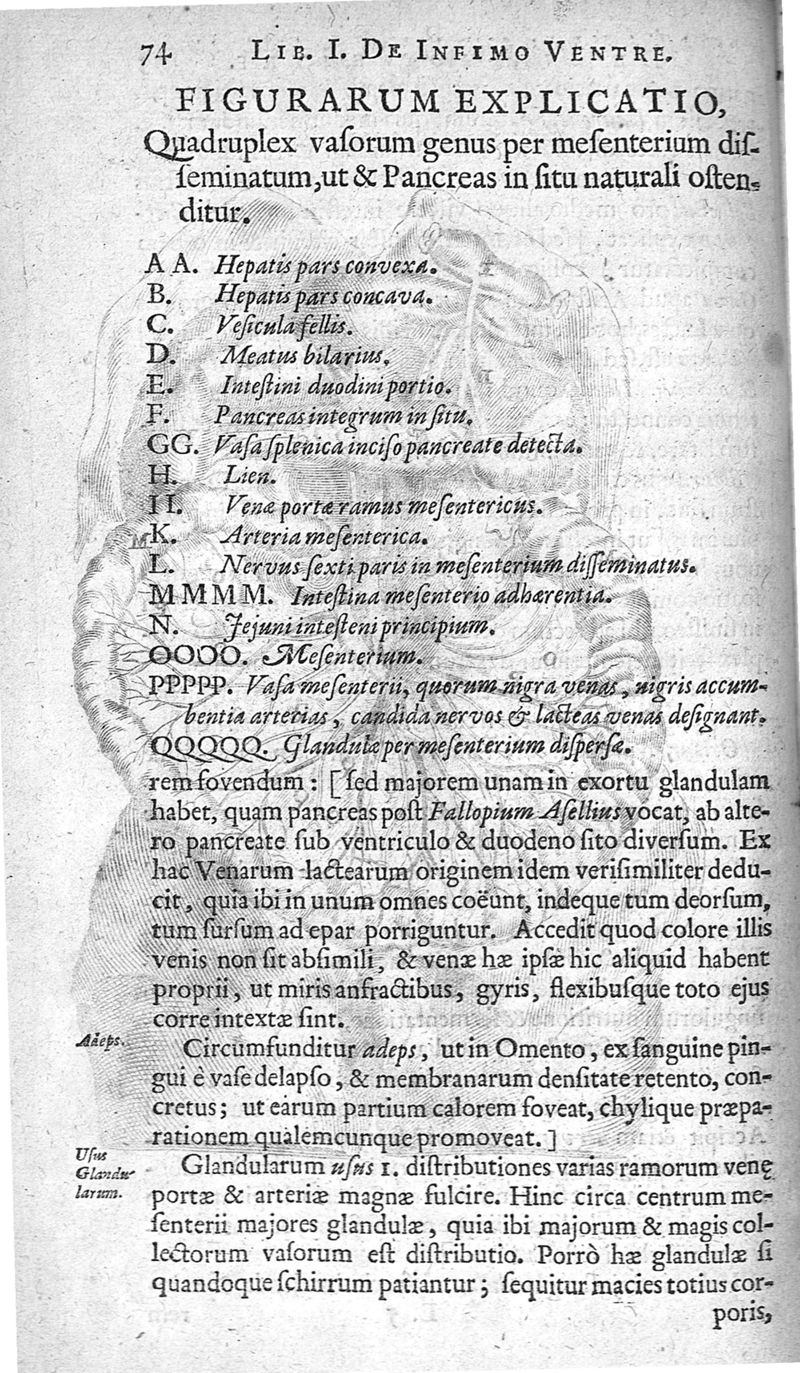 74 LIB. I. DE INFIMO VENTRE.
FIGURARUM EXPLICATIO,
Quadruplex vaſorum genus per meſenterium diſ-
ſeminatum, ut & Pancreas in ſitu naturali oſten-
ditur.
A A. Hepatis pars convexa.
B. Hepatis pars concava.
C. Veſicula fellis.
D. Meatus bilarius.
E. Inteſtini duodini portio.
F. Pancreas integrum in ſitu.
GG. Vaſa ſplenica inciſo pancreate detecta.
H. Lien.
I I. Venæ portæ ramus meſentericus.
K. Arteria meſenterica.
L. Nervus ſexti paris in meſenterium diſſeminatus.
M M M M. Inteſtina meſenterio adhærentia.
N. Jejuni inteſteni principium.
OOOO. Meſenterium.
PPPPP. Vaſa meſenterii, quorum nigra venas, nigris accum-
bentia arterias, candida nervos & lacteas venas deſignant.
QQQQQ. Glandulæ per meſenterium diſperſæ.
rem fovendum: [ſed majorem unam in exortu glandulam
habet, quam pancreas poſt Fallopium Aſellius vocat, ab alte-
ro pancreate ſub ventriculo & duodeno ſito diverſum. Ex
hac Venarum lactearum originem idem veriſimiliter dedu-
cit, quia ibi in unum omnes coëunt, indeque tum deorſum,
tum ſurſum ad epar porriguntur. Accedit quod colore illis
venis non ſit abſimili, & venæ hæ ipſæ hic aliquid habent
proprii, ut miris anfractibus, gyris, flexibuſque toto ejus
corre intextæ ſint.
Adeps.
Circumfunditur adeps, ut in Omento, ex ſanguine pin-
gui è vaſe delapſo, & membranarum denſitate retento, con-
cretus; ut earum partium calorem foveat, chylique præpa-
rationem qualemcunque promoveat.]
Uſus
Glandu-
larum.
Glandularum uſus 1. diſtributiones varias ramorum venę
portæ & arteriæ magnæ fulcire. Hinc circa centrum me-
ſenterii majores glandulæ, quia ibi majorum & magis col-
lectorum vaſorum eſt diſtributio. Porrò hæ glandulæ ſi
quandoque ſchirrum patiantur; ſequitur macies totius cor-
poris,